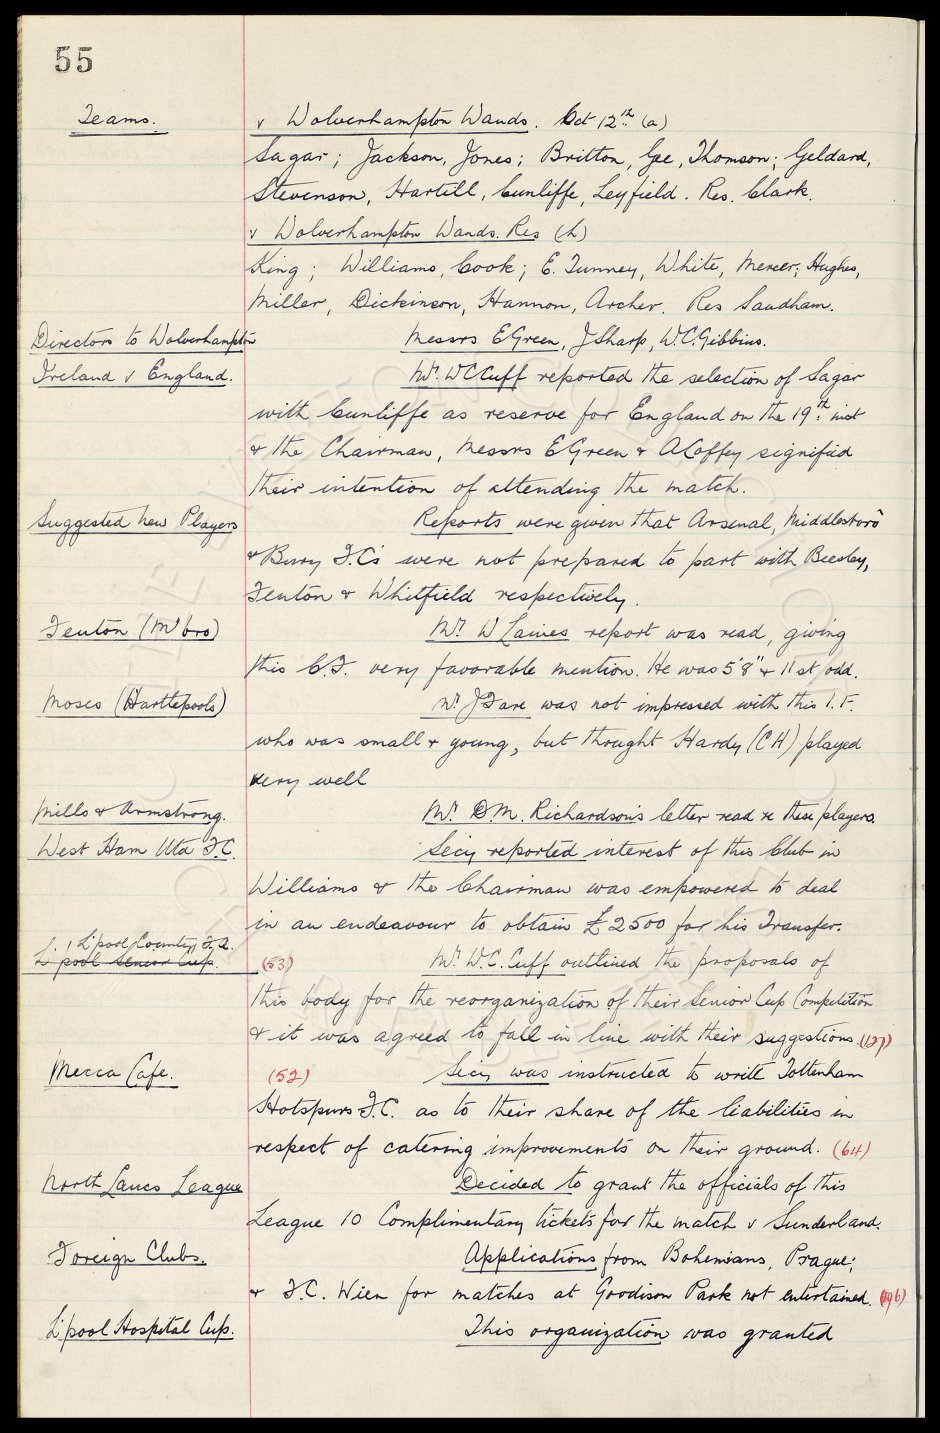 55
Teams.
v Wolverhampton Wands. Oct 12th (a)
Sagar; Jackson, Jones; Britton, Gee, Thomson; Geldard,
Stevenson, Hartill, Cunliffe, Leyfield. Res. Clark.
v Wolverhampton Wands. Res (h)
King; Williams, Cook; E. Tunney, White, Mercer; Hughes,
Miller, Dickinson, Hannon, Archer. Res Sandham.
Directors to Wolverhampton
Messrs E Green, J Sharp, W.C. Gibbins.
Ireland v England.
Mr. W C Cuff reported the selection of Sagar
with Cunliffe as reserve for England on the 19th inst
& the Chairman, Messrs E Green & A Coffey signified
their intention of attending the match.
Suggested New Players
Reports were given that Arsenal, Middlesboro
& Bury F.C's were not prepared to part with Beesley,
Fenton & Whitfield respectively.
Fenton (M'bro)
Mr. W Laines report was read, giving
this C.F. very favorable mention. He was 5'8" & 11 st odd.
Moses (Hartlepools)
Mr J Fare was not impressed with this I.F.
who was small & young, but thought Hardy (C H) played
very well
Mills & Armstrong.
Mr. D.M. Richardson's letter read re these players.
West Ham Utd F.C.
Secy reported interest of this Club in
Williams & the Chairman was empowered to deal
in an endeavour to obtain £2500 for his Transfer.
L'pool County F.A.
L'pool Senior Cup.
(53) Mr. W.C. Cuff outlined the proposals of
this body for the reorganization of their Senior Cup Competition
& it was agreed to fall in line with their suggestions. (127)
Mecca Cafe.
(52) Secy was instructed to write Tottenham
Hotspurs F.C. as to their share of the liabilities in
respect of catering improvements on their ground. (64)
North Lancs League
Decided to grant the officials of this
League 10 Complimentary tickets for the match v Sunderland.
Foreign Clubs.
Applications from Bohemians, Prague;
& F.C. Wien for matches at Goodison Park not entertained. (196)
L'pool Hospital Cup.
This organization was granted